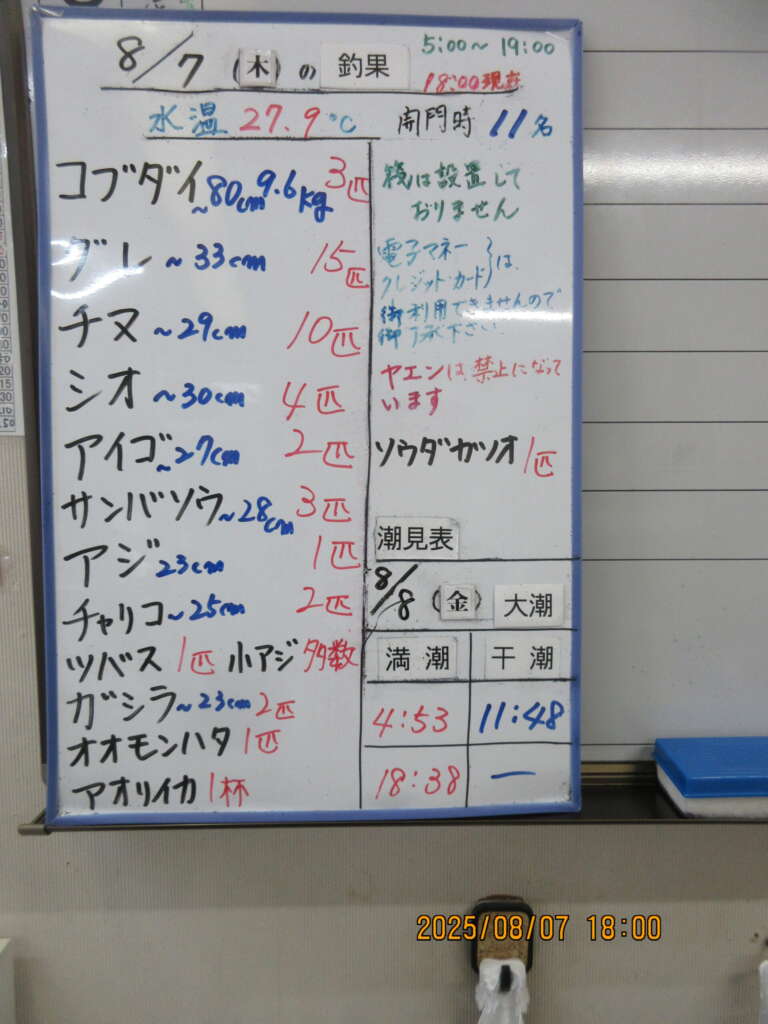 8/7(木)の釣果
5:00~19:00
18:00現在
水温 27.9℃ 開門時 11名
コブダイ ~80cm 9.6kg 3匹
グレ ~33cm 15匹
チヌ ~29cm 10匹
シオ ~30cm 4匹
アイゴ ~27cm 2匹
サンバソウ ~28cm 3匹
アジ 23cm 1匹
チャリコ ~25cm 2匹
ツバス 1匹 小アジ 多数
ガシラ ~23cm 2匹
オオモンハタ 1匹
アオリイカ 1杯
は設置して
おりません
電子マネー
クレジットカード は
御利用できませんので
御了承下さい
ヤエンは禁止になって
います
ソウダガツオ 1匹
潮見表
8/8(金) 大潮
満潮 干潮
4:53 11:48
18:38 —
2025/08/07 18:00